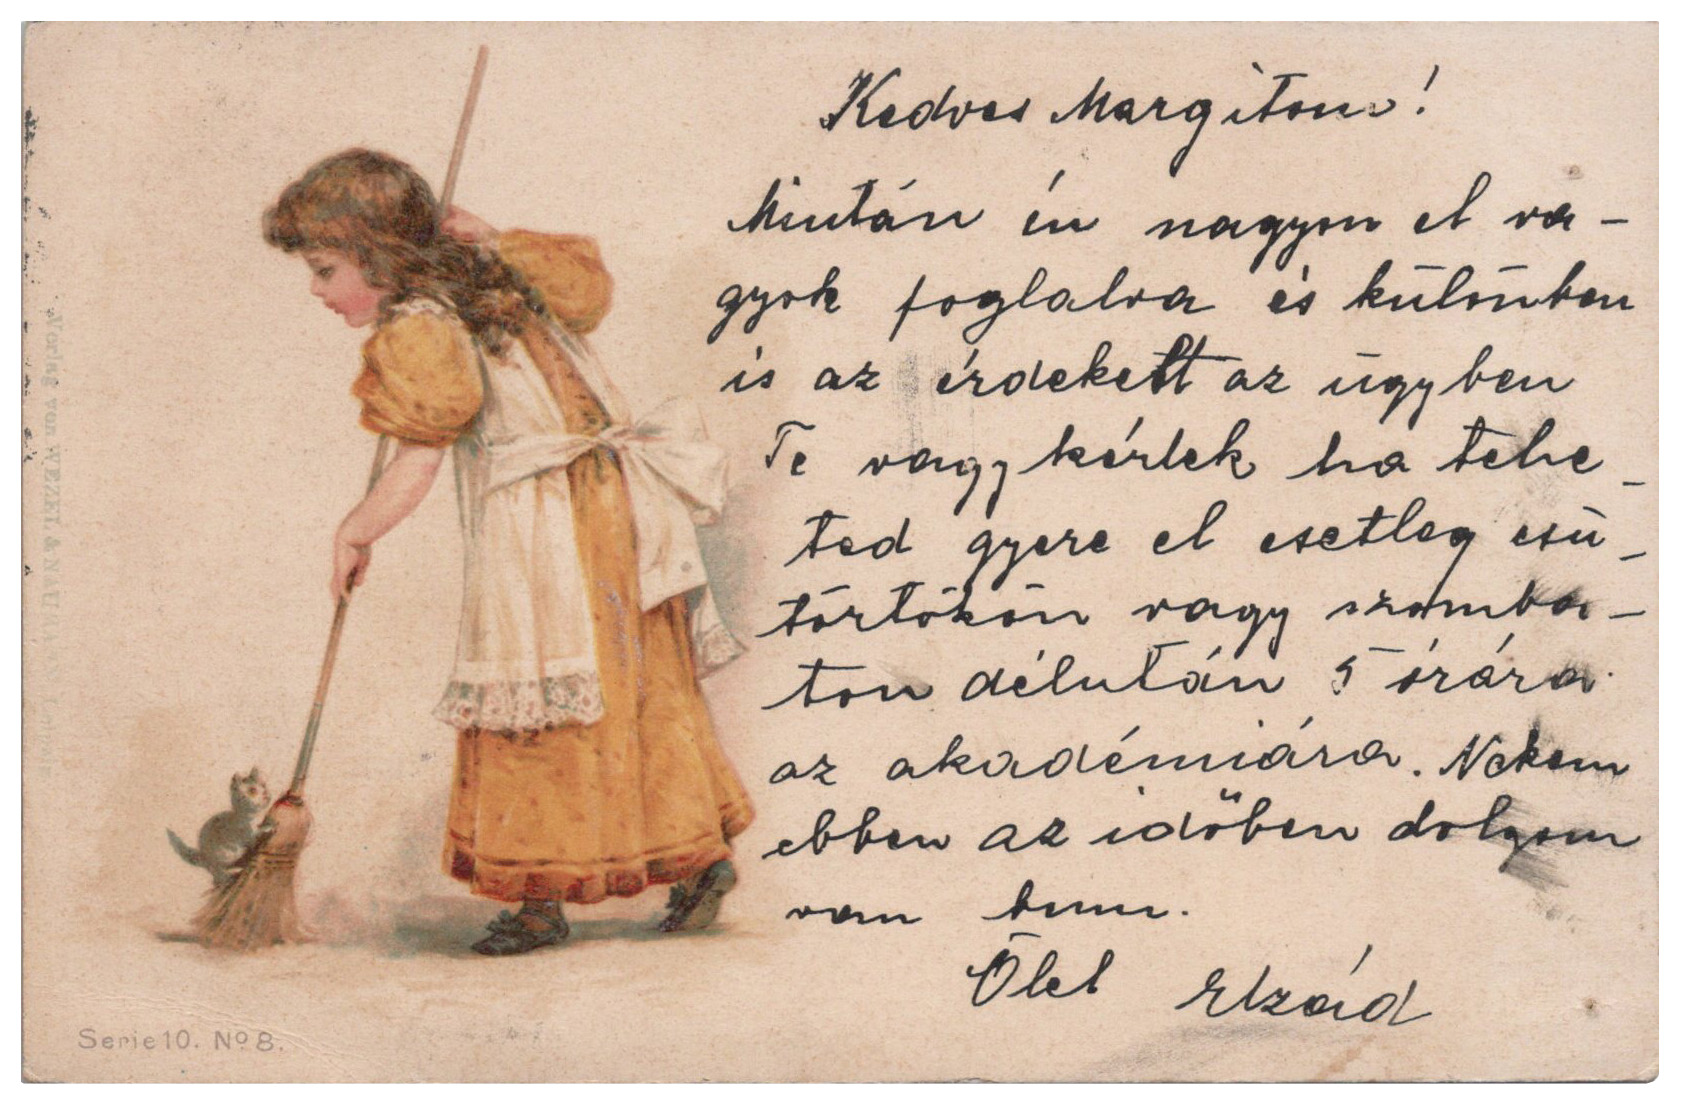 Kedves Margitom!
Miután én nagyon el va-
gyok foglalva és különben
is az érdekelt az ügyben
Te vagy kérlek ha tehe-
ted gyere el esetleg csü-
törtökön vagy szomba-
ton délután 5 órára
az akadémiára. Nekem
ebben az időben dolgom
van benn.
Ölel Elzád
Verlag von WEZEL & NAUMANN, Leipzig
Serie 10. No 8.